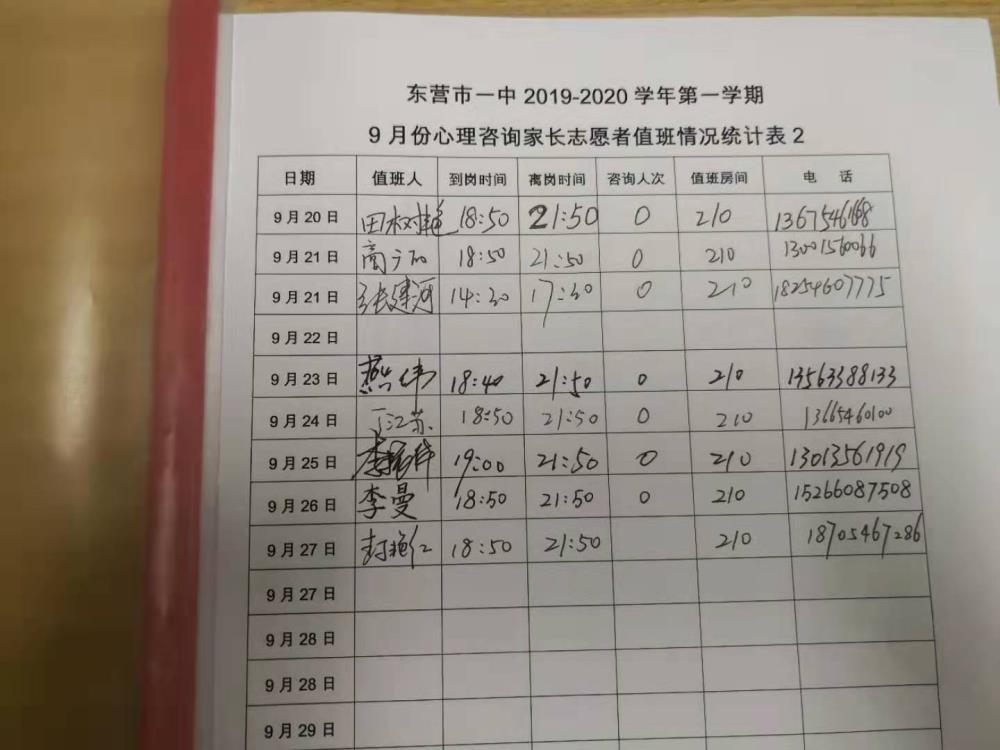 东营市一中 2019-2020 学年第一学期
9 月份心理咨询家长志愿者值班情况统计表 2
日期 值班人 到岗时间 离岗时间 咨询人次 值班房间 电 话
9 月 20 日 18:50 21:50 0 210
9 月 21 日 18:50 21:50 0 210 13001560066
9 月 21 日 张建河 14:30 17:30 0 210 18254607775
9 月 22 日
9 月 23 日 燕伟 18:40 21:50 0 210 13563388133
9 月 24 日 丁江苏 18:50 21:50 0 210 13665460100
9 月 25 日 19:00 21:50 0 210 13013561919
9 月 26 日 李曼 18:50 21:50 0 210 15266087508
9 月 27 日 封艳仁 18:50 21:50 210 18705467286
9 月 27 日
9 月 28 日
9 月 28 日
9 月 29 日